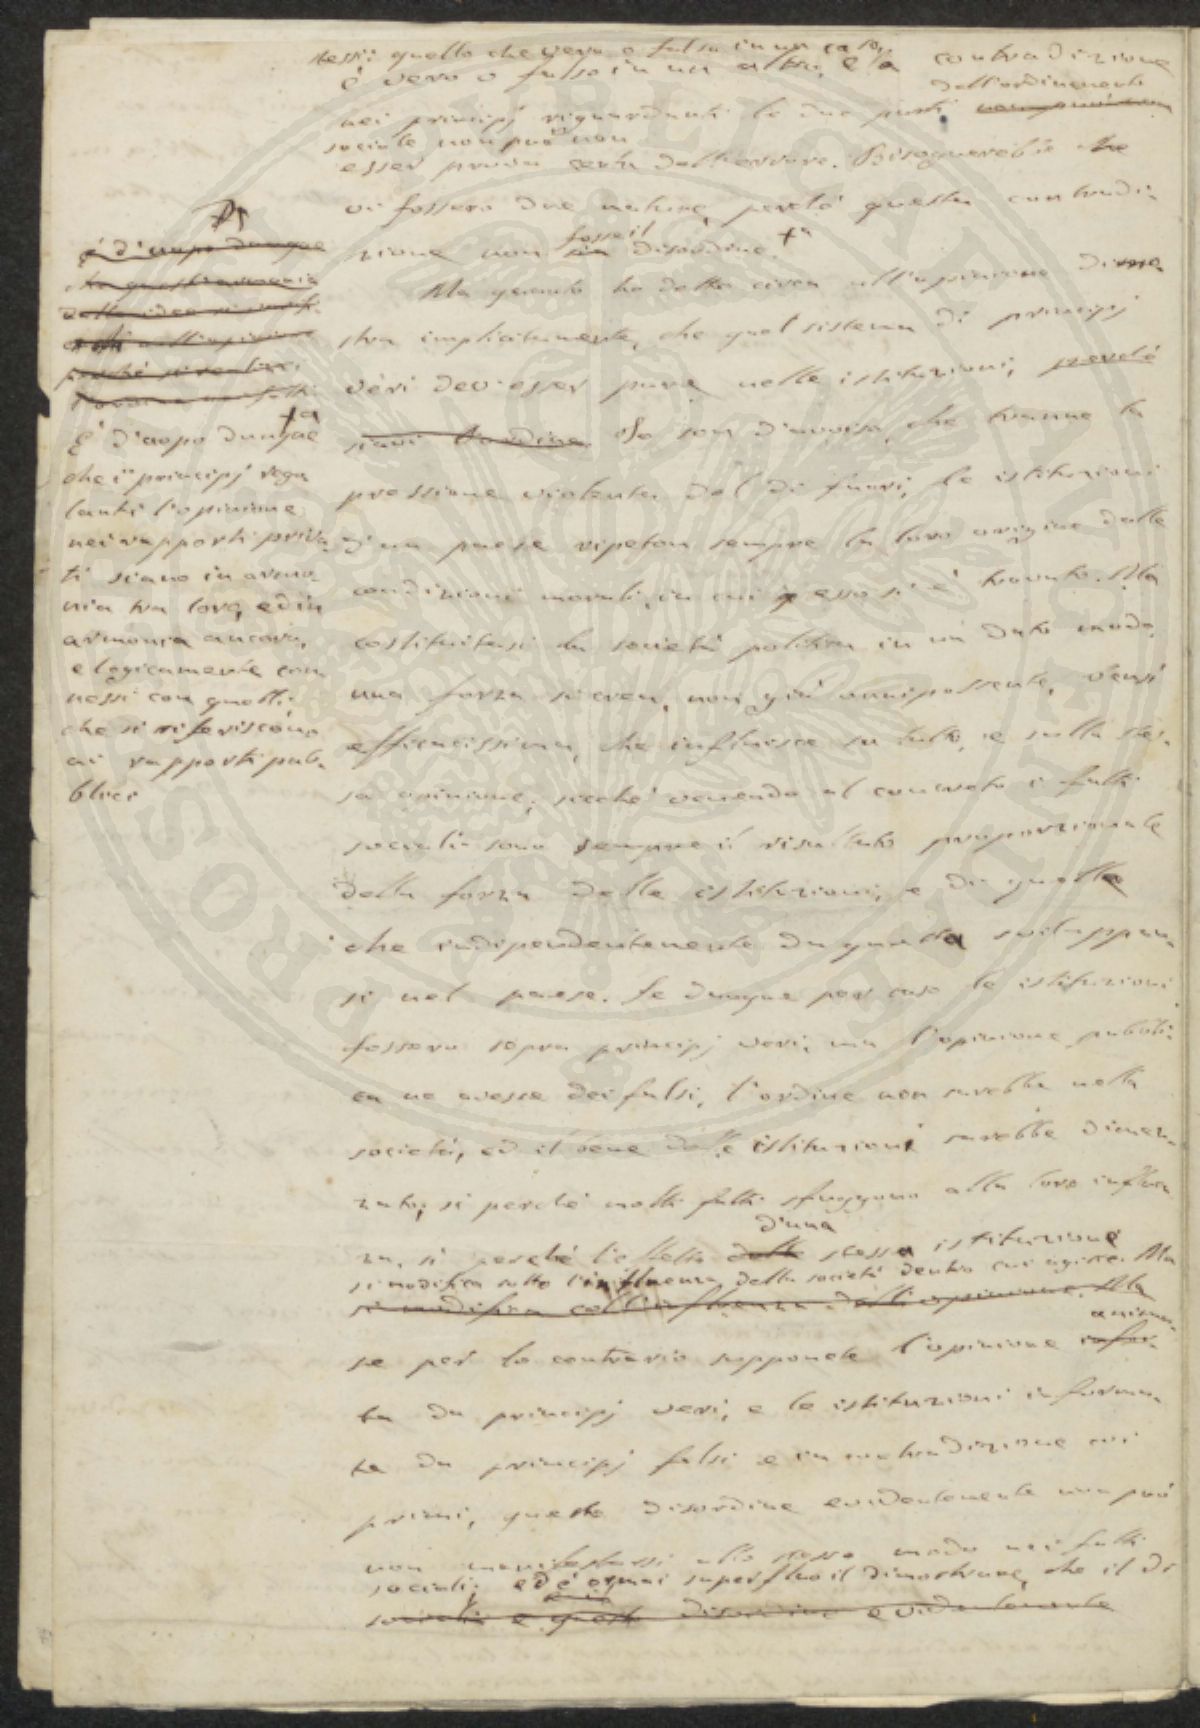 stessi: quello che vero o falso in un caso,
è vero o falso in un altro, e la contradizione
dell'ordinamento
nei principj riguardanti le due parti
sociale non può non
esser prova certa dell'errore. Bisognerebbe che
vi fossero due nature, perchè questa contradi-
fosse il
zione non sia disordine. +a
Ma quanto ho detto circa all'opinione dimo-
stra implicitamente, che quel sistema di principj
veri dev'esser pure nelle istituzioni, perchè
siavi l'ordine. Io son d'avviso, che tranne la
pressione violenta del di fuori, le istituzioni
d'un paese ripeton sempre la loro origine dalle
condizioni morali, in cui esso si è trovato. Ma
costituitasi la società politica in un dato modo,
una forza si crea, non già onnipossente, bensì
efficacissima, che influisce su tutto, e sulla stes-
sa opinione; sicchè venendo al concreto i fatti
sociali sono sempre il risultato proporzionale
della forza delle istituzioni, e di quella
che indipendentemente da questa sviluppa-
si nel paese. Se dunque per caso le istituzioni
fossero sopra principj veri, ma l'opinione pubbli-
ca ne avesse dei falsi, l'ordine non sarebbe nella
società, ed il bene delle istituzioni sarebbe dimez-
zato, sì perchè molti fatti sfuggono alla loro influen
d'una
za, sì perchè l'effetto delle stessa istituzione
si modifica sotto l'influenza della società dentro cui agisce. Ma
si modifica coll'influenza dell'opinione. Ma
anima-
se per lo contrario supponete l'opinione infor-
ta da principj veri, e le istituzioni informa-
te da principj falsi e in contradizione coi
primi, questo disordine evidentemente non può
non manifestarsi allo stesso modo nei fatti
sociali; ed è ormai superfluo il dimostrare, che il di
sociali e questo disordine evidentemente
è d'uopo dunque
che quest'armonia
delle idee
all'opinione
perchè si realizzi
l'ordine nei fatti
+a
È d'uopo dunque
che i principj rego
lanti l'opinione
nei rapporti priva
ti siano in armo-
nia tra loro, ed in
armonia ancora,
e logicamente con
nessi con quelli,
che si riferiscono
ai rapporti pub-
blici